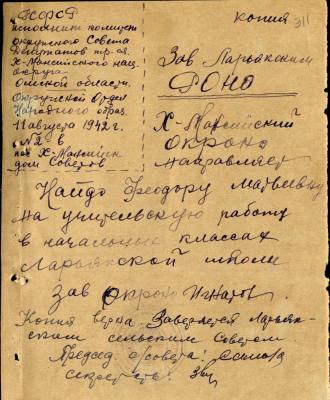 РСФСР
исполнит комитет
окружского Совета
Депутатов тр-ся.
Х-Мансийского нац.
округа
Омской области.
Окружской Отдел
Народного образ.
11 августа 1942 г.
пос Х-Мансийск
дом Советов
Копия
311
Зав Ларьякским
РОНО
Х-Мансийский
Окроно
направляет
Найдо Феодору Матвеевну
на учительскую работу
в начальных классах
Ларьякской школы
Зав Окроно Игнатов.
Копия верна: Заверяется Ларьяк-
ским сельским Советом
Председ с/совета:
Секретарь: